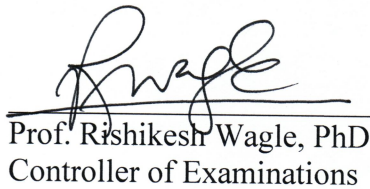 RWagle
Prof. Rishikesh Wagle, PhD
Controller of Examinations